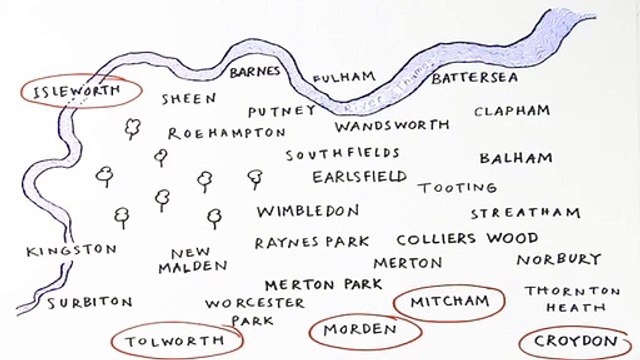 BARNES
FULHAM
BATTERSEA
ISLEWORTH
SHEEN
River Thames
PUTNEY
CLAPHAM
ROEHAMPTON
WANDSWORTH
SOUTHFIELDS
BALHAM
EARLSFIELD
TOOTING
WIMBLEDON
STREATHAM
RAYNES PARK
COLLIERS WOOD
KINGSTON
NEW
MALDEN
MERTON
NORBURY
MERTON PARK
SURBITON
WORCESTER
PARK
MITCHAM
THORNTON
HEATH
TOLWORTH
MORDEN
CROYDON